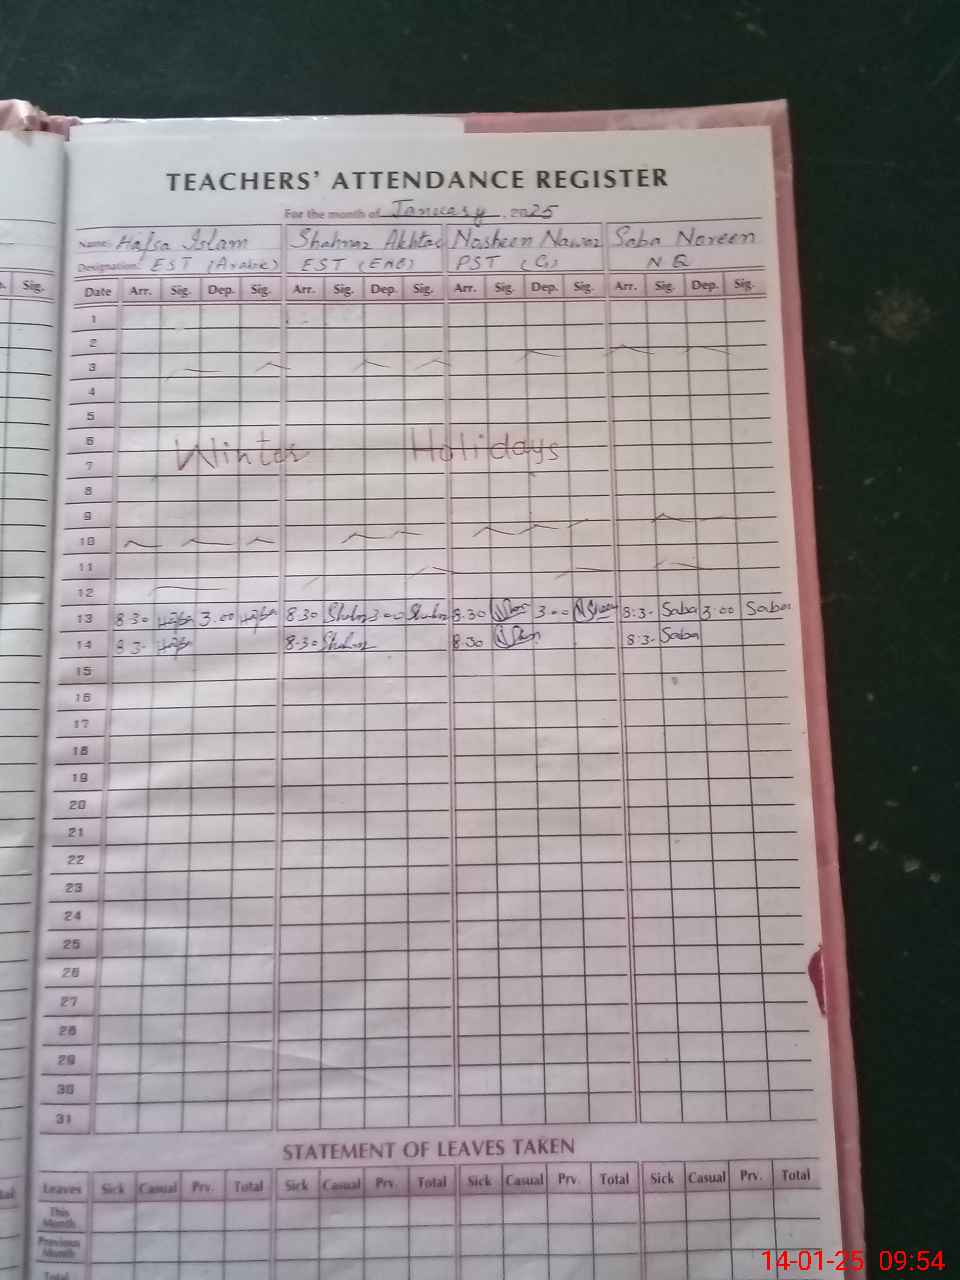 TEACHERS' ATTENDANCE REGISTER
For the month of January, 2025
Name: Hafsa Islam Shahnaz Akhtar Nosheen Nawaz Saba Noreen
Designation: EST (Arabic) EST (ENG) PST (G)
Sig.
Date Arr. Sig. Dep. Sig. Arr. Sig. Dep. Sig. Arr. Sig. Dep. Sig. Arr. Sig. Dep. Sig.
1
2
3
4
5
6
Winter Holidays
7
8
9
10
11
12
13 8.30 Hafsa 3.00 Hafsa 8.30 Shahnaz 3.00 Shahnaz 8.30 3.00 8:3- Saba 3.00 Saba
14 8 3- Hafsa 8-30 Shahnaz 8.30 8:3- Saba
15
16
17
18
19
20
21
22
23
24
25
26
27
28
29
30
31
STATEMENT OF LEAVES TAKEN
Leaves Sick Casual Prv. Total Sick Casual Prv. Total Sick Casual Prv. Total Sick Casual Prv. Total
This
Month
Previous
Month
Total
14-01-25 09:54